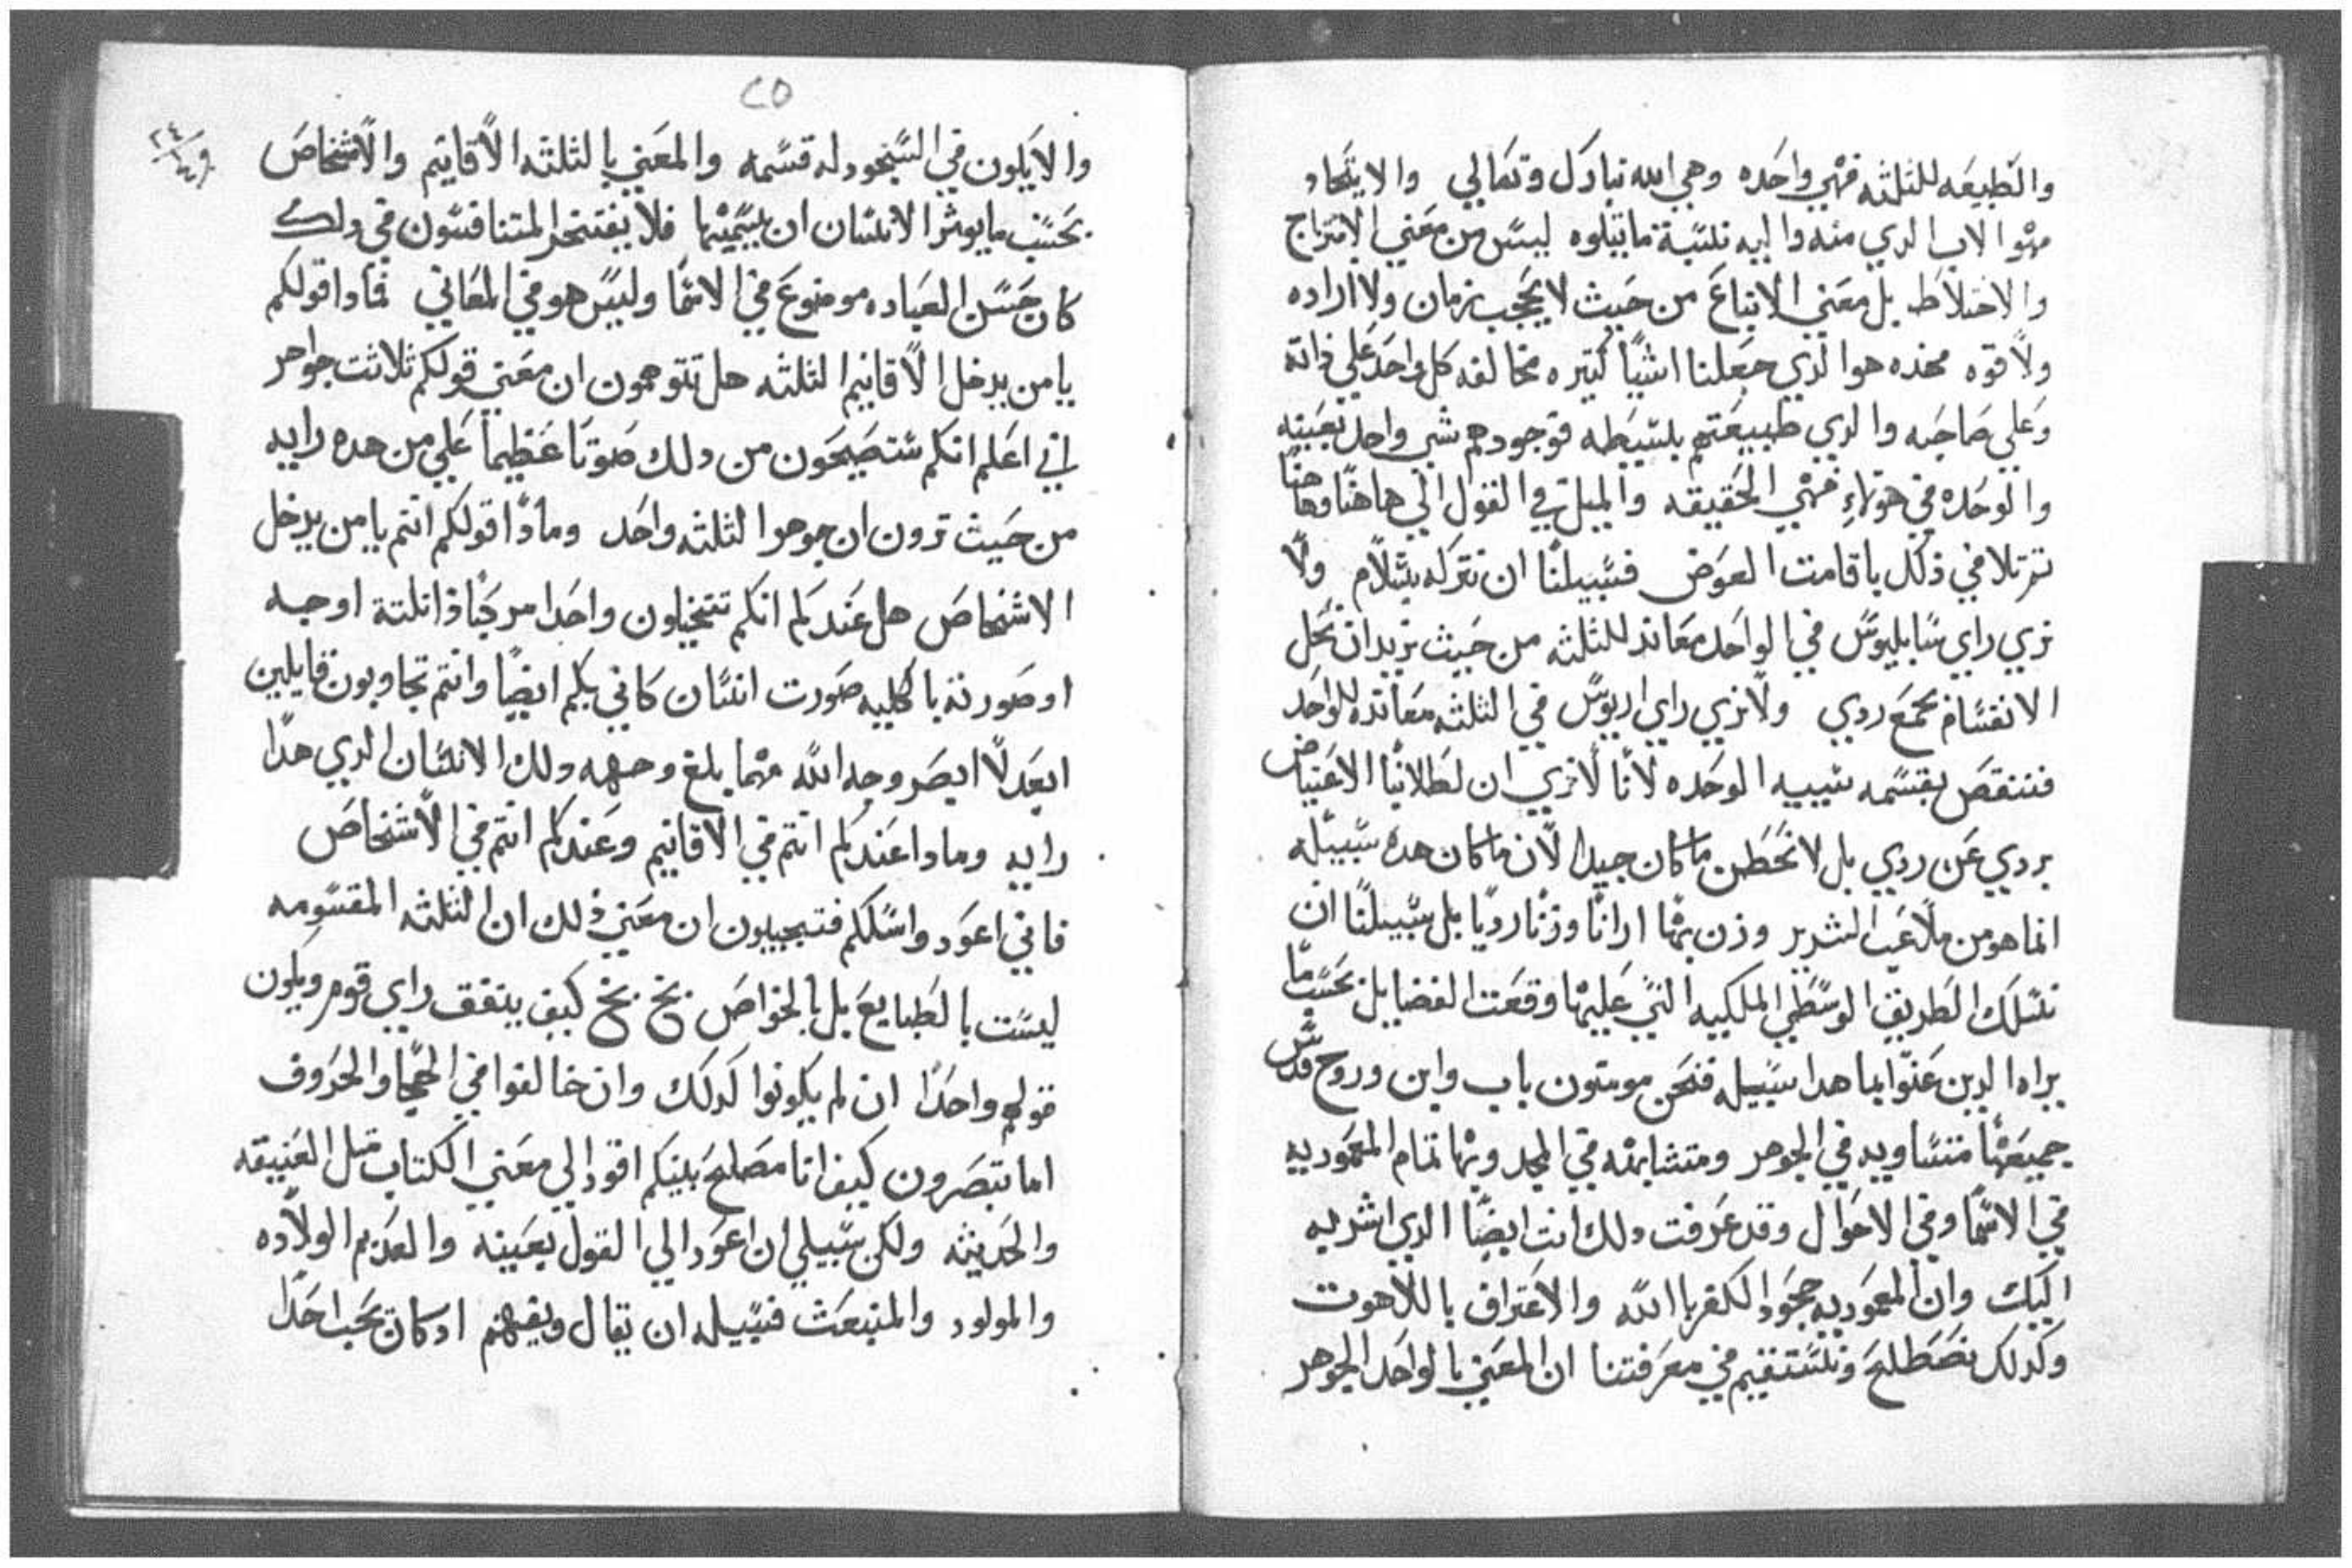 والطبيعه للثلثه فهي واحده وهي الله تبارك وتعالي والايتحاد
فهو الاب الدي منه واليه نسبة ما يتلوه ليس من معني الامتزاج
والاختلاط بل معني الاتباع من حيث لا يحجب زمان ولا اراده
ولا قوه فهده هو الدي جعلنا اشيا كتيره مخالفه كل واحد علي داته
وعلي صاحبه والدي طبيعتهم بسيطه فوجودهم شي واحد بعينه
والوحده في هولاء فهي الحقيقه والميل في القول الي هاهنا وهاهنا
باقامت العوض فسبيلنا ان نتركه بسلام ولا
نري راي سابليوس في الواحد معاند للثلثه من حيث نريد ان نحل
الانقسام بجمع ردي ولا نري راي اريوس في الثلثه معانده للواحد
فننقص بقسمه الوحده لانا لا نري ان لطلابنا الاعتياض
بردي عن ردي بل لا نخطن ما كان جيدا لان ما كان هده سبيله
انما هو من ملاعب الشرير وزن بهما ارانا وزنا رديا بل سبيلنا ان
نسلك الطريق الوسطي الملكيه التي عليها وقعت الفضايل بحسب ما
يراه الدين عنوا بما هدا سبيله فنحن مومنون باب وابن وروح قدس
جميعها متساويه في الجوهر ومتشابهه في المجد وبها تمام المعموديه
في الاسما وفي الاحوال وقد عرفت دلك انت ايضا الدي اشريه
اليك وان المعموديه جحود الكفر باالله والاعتراف باللاهوت
وكدلك نصطلح ونستقيم في معرفتنا ان المعني بالواحد الجوهر
٢٥
والا يكون في السجود له قسمه والمعني بالثلثه الاقانيم والاشخاص
بحسب ما يوثر الانسان ان يسميها فلا يفتخر المتنافسون في دلك
كان حسن العباده موضوع في الاسما وليس هو في المعاني فمادا قولكم
يا من يدخل الاقانيم الثلثه هل تتوهمون ان معني قولكم ثلاثت جواهر
اني اعلم انكم ستصيحون من دلك صوتا عظيما علي من هده رايه
من حيث ترون ان جوهر الثلثه واحد ومادا قولكم انتم يا من يدخل
الاشخاص هل عندكم انكم تتخيلون واحدا مركبا دا ثلتة اوجه
او صورته باكليه صورت انسان كاني بكم ايضا وانتم تجاوبون قايلين
ابعد لا ابصر وجه الله مهما بلغ وجهه دلك الانسان الدي هدا
رايه ومادا عندكم انتم في الاقانيم وعندكم انتم في الاشخاص
فاني اعود واسلكم فتجيبون ان معني ذلك ان الثلثه المقسومه
ليست بالطبايع بل بالخواص بخ بخ كيف يتفق راي قوم ويكون
قولهم واحدا ان لم يكونوا كدلك وان خالفوا في الهجا والحروف
اما تبصرون كيف انا مصلح بينكم اقود الي معني الكتاب مثل العتيقه
والحديثه ولكن سبيلي ان اعود الي القول بعينه والعديم الولاده
والمولود والمنبعث فسبيله ان يقال ويفهم ادكان يحب احدا